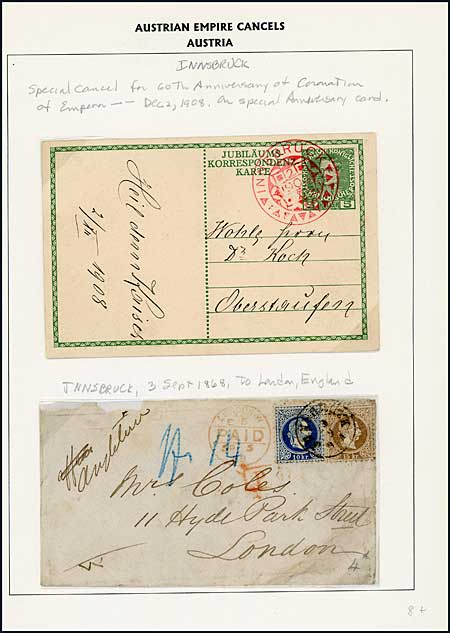 AUSTRIAN EMPIRE CANCELS
AUSTRIA
INNSBRUCK
Special Cancel for 60th Anniversary of Coronation
of Emperor -- Dec 2, 1908. On special Anniversary card.
JUBILÄUMS
KORRESPONDENZ
KARTE
INNSBRUCK
5
Heil dem Kaiser
1908
Dr Koch
Oberstaufen
INNSBRUCK, 3 Sept 1868, To London, England
PAID
10 kr
Mrs Coles
11 Hyde Park Street
London
4
8+